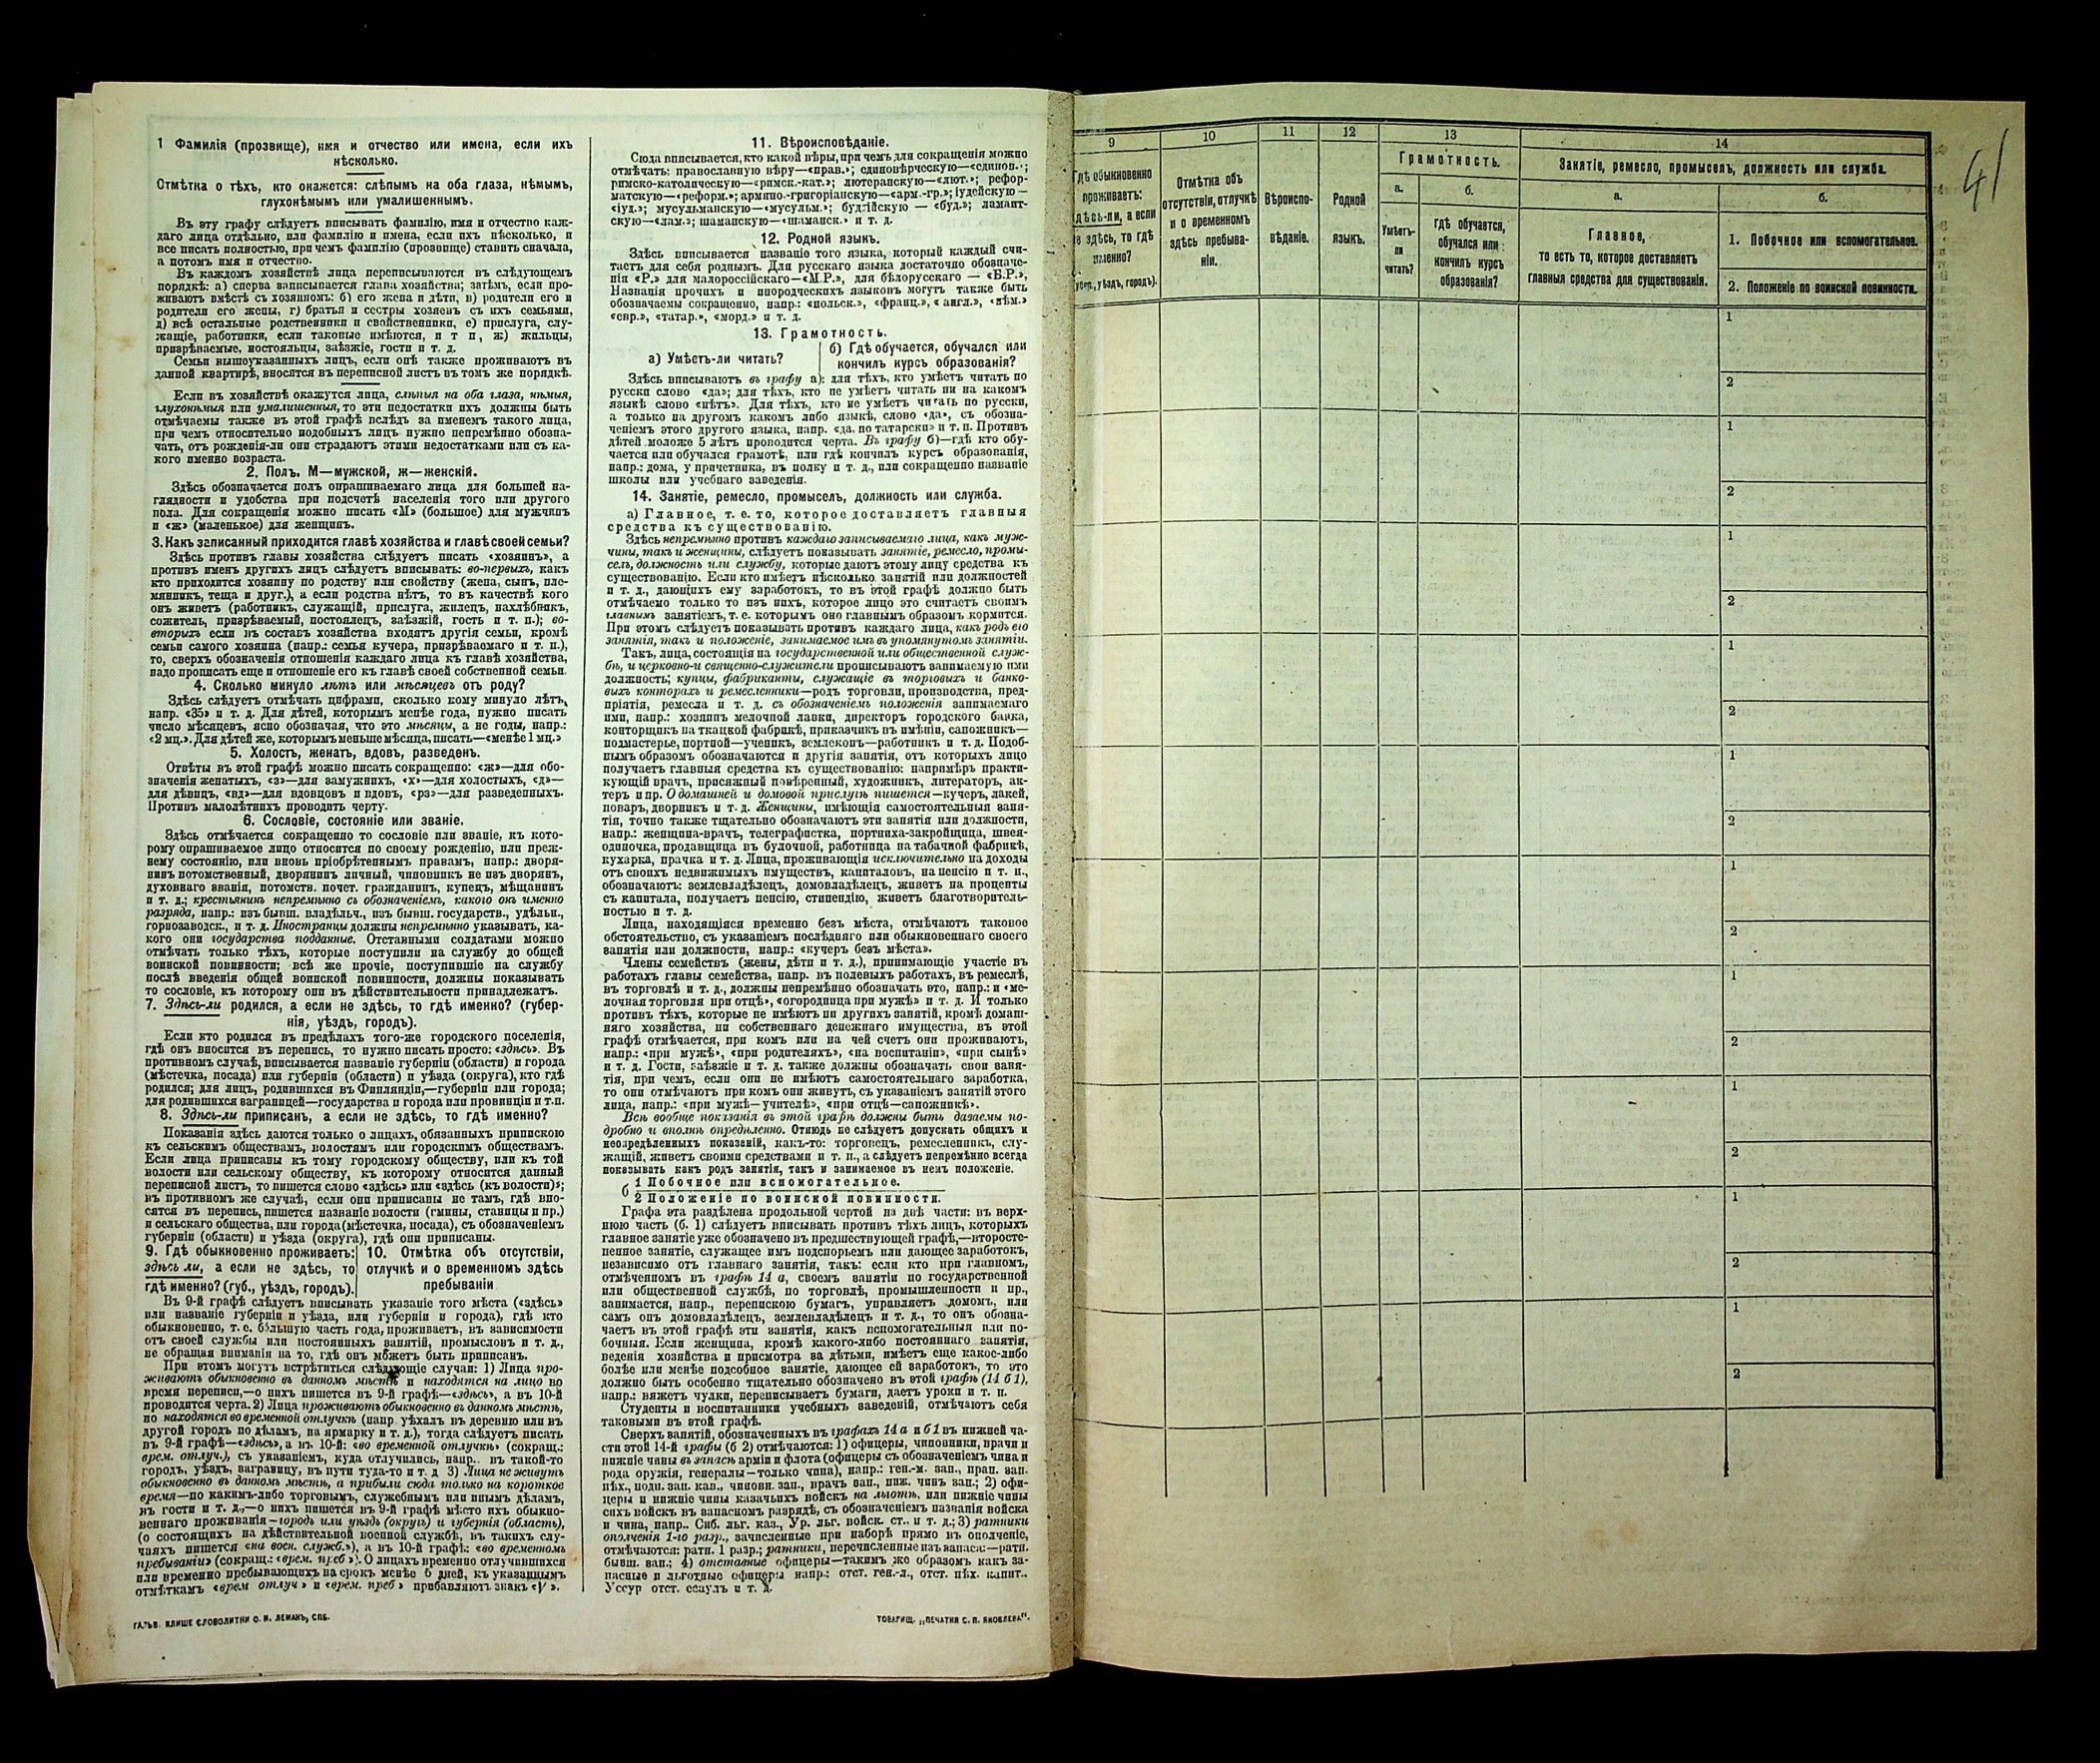 1 Фамилія (прозвище), имя и отчество или имена, если ихъ
нѣсколько.
Отмѣтка о тѣхъ, кто окажется: слѣпымъ на оба глаза, нѣмымъ,
глухонѣмымъ или умалишеннымъ.
Въ эту графу слѣдуетъ вписывать фамилію, имя и отчество каж-
даго лица отдѣльно, или фамилію и имена, если ихъ нѣсколько, и
все писать полностью, при чемъ фамилію (прозвище) ставить сначала,
а потомъ имя и отчество.
Въ каждомъ хозяйствѣ лица переписываются въ слѣдующемъ
порядкѣ: а) сперва записывается глава хозяйства; затѣмъ, если про-
живаютъ вмѣстѣ съ хозяиномъ: б) его жена и дѣти, в) родители его и
родители его жены, г) братья и сестры хозяевъ съ ихъ семьями,
д) всѣ остальные родственники и свойственники, е) прислуга, слу-
жащіе, работники, если таковые имѣются, и т п, ж) жильцы,
призрѣваемые, постояльцы, заѣзжіе, гости и т. д.
Семьи вышеуказанныхъ лицъ, если онѣ также проживаютъ въ
данной квартирѣ, вносятся въ переписной листъ въ томъ же порядкѣ.
Если въ хозяйствѣ окажутся лица, слѣпыя на оба глаза, нѣмыя,
глухонѣмыя или умалишенныя, то эти недостатки ихъ должны быть
отмѣчаемы также въ этой графѣ вслѣдъ за именемъ такого лица,
при чемъ относительно подобныхъ лицъ нужно непремѣнно обозна-
чать, отъ рожденія-ли они страдаютъ этими недостатками или съ ка-
кого именно возраста.
2. Полъ. М—мужской, ж—женскій.
Здѣсь обозначается полъ опрашиваемаго лица для большей на-
глядности и удобства при подсчетѣ населенія того или другого
пола. Для сокращенія можно писать «М» (большое) для мужчинъ
и «ж» (маленькое) для женщинъ.
3. Какъ записанный приходится главѣ хозяйства и главѣ своей семьи?
Здѣсь противъ главы хозяйства слѣдуетъ писать «хозяинъ», а
противъ именъ другихъ лицъ слѣдуетъ вписывать: во-первыхъ, какъ
кто приходится хозяину по родству или свойству (жена, сынъ, пле-
мянникъ, теща и друг.), а если родства нѣтъ, то въ качествѣ кого
онъ живетъ (работникъ, служащій, прислуга, жилецъ, нахлѣбникъ,
сожитель, призрѣваемый, постоялецъ, заѣзжій, гость и т. п.); во-
вторыхъ если въ составъ хозяйства входятъ другія семьи, кромѣ
семьи самого хозяина (напр.: семья кучера, призрѣваемаго и т. п.),
то, сверхъ обозначенія отношенія каждаго лица къ главѣ хозяйства,
надо прописать еще и отношеніе его къ главѣ своей собственной семьи.
4. Сколько минуло лѣтъ или мѣсяцевъ отъ роду?
Здѣсь слѣдуетъ отмѣчать цифрами, сколько кому минуло лѣтъ,
напр. «35» и т. д. Для дѣтей, которымъ менѣе года, нужно писать
число мѣсяцевъ, ясно обозначая, что это мѣсяцы, а не годы, напр.:
«2 мц.». Для дѣтей же, которымъ меньше мѣсяца, писать—«менѣе 1 мц.»
5. Холостъ, женатъ, вдовъ, разведенъ.
Отвѣты въ этой графѣ можно писать сокращенно: «ж»—для обо-
значенія женатыхъ, «з»—для замужнихъ, «х»—для холостыхъ, «д»—
для дѣвицъ, «вд»—для вдовцовъ и вдовъ, «рз»—для разведенныхъ.
Противъ малолѣтнихъ проводить черту.
6. Сословіе, состояніе или званіе.
Здѣсь отмѣчается сокращенно то сословіе или званіе, къ кото-
рому опрашиваемое лицо относится по своему рожденію, или преж-
нему состоянію, или вновь пріобрѣтеннымъ правамъ, напр.: дворя-
нинъ потомственный, дворянинъ личный, чиновникъ не изъ дворянъ,
духовнаго званія, потомств. почет. гражданинъ, купецъ, мѣщанинъ
и т. д.; крестьянинъ непремѣнно съ обозначеніемъ, какого онъ именно
разряда, напр.: изъ бывш. владѣльч., изъ бывш. государств., удѣльн.,
горнозаводск., и т. д. Иностранцы должны непремѣнно указывать, ка-
кого они государства подданные. Отставными солдатами можно
отмѣчать только тѣхъ, которые поступили на службу до общей
воинской повинности; всѣ же прочіе, поступившіе на службу
послѣ введенія общей воинской повинности, должны показывать
то сословіе, къ которому они въ дѣйствительности принадлежатъ.
7. Здѣсь-ли родился, а если не здѣсь, то гдѣ именно? (губер-
нія, уѣздъ, городъ).
Если кто родился въ предѣлахъ того-же городского поселенія,
гдѣ онъ вносится въ перепись, то нужно писать просто: «здѣсь». Въ
противномъ случаѣ, вписывается названіе губерніи (области) и города
(мѣстечка, посада) или губерніи (области) и уѣзда (округа), кто гдѣ
родился; для лицъ, родившихся въ Финляндіи,—губерніи или города;
для родившихся заграницей—государства и города или провинціи и т.п.
8. Здѣсь-ли приписанъ, а если не здѣсь, то гдѣ именно?
Показанія здѣсь даются только о лицахъ, обязанныхъ припискою
къ сельскимъ обществамъ, волостямъ или городскимъ обществамъ.
Если лица приписаны къ тому городскому обществу, или къ той
волости или сельскому обществу, къ которому относится данный
переписной листъ, то пишется слово «здѣсь» или «здѣсь (къ волости)»;
въ противномъ же случаѣ, если они приписаны не тамъ, гдѣ вно-
сятся въ перепись, пишется названіе волости (гмины, станицы и пр.)
и сельскаго общества, или города (мѣстечка, посада), съ обозначеніемъ
губерніи (области) и уѣзда (округа), гдѣ они приписаны.
9. Гдѣ обыкновенно проживаетъ:
здѣсь ли, а если не здѣсь, то
гдѣ именно? (губ., уѣздъ, городъ).
10. Отмѣтка объ отсутствіи,
отлучкѣ и о временномъ здѣсь
пребываніи
Въ 9-й графѣ слѣдуетъ вписывать указаніе того мѣста («здѣсь»
или названіе губерніи и уѣзда, или губерніи и города), гдѣ кто
обыкновенно, т. е. бо́льшую часть года, проживаетъ, въ зависимости
отъ своей службы или постоянныхъ занятій, промысловъ и т. д.,
не обращая вниманія на то, гдѣ онъ можетъ быть приписанъ.
При этомъ могутъ встрѣтиться слѣдующіе случаи: 1) Лица про-
живаютъ обыкновенно въ данномъ мѣстѣ и находятся на лицо во
время переписи,—о нихъ пишется въ 9-й графѣ—«здѣсь», а въ 10-й
проводится черта. 2) Лица проживаютъ обыкновенно въ данномъ мѣстѣ,
но находятся во временной отлучкѣ (напр. уѣхалъ въ деревню или въ
другой городъ по дѣламъ, на ярмарку и т. д.), тогда слѣдуетъ писать
въ 9-й графѣ—«здѣсь», а въ 10-й: «во временной отлучкѣ» (сокращ.:
врем. отлуч.), съ указаніемъ, куда отлучились, напр.. въ такой-то
городъ, уѣздъ, заграницу, въ пути туда-то и т. д 3) Лица не живутъ
обыкновенно въ данномъ мѣстѣ, а прибыли сюда только на короткое
время—по какимъ-либо торговымъ, служебнымъ или инымъ дѣламъ,
въ гости и т. д.,—о нихъ пишется въ 9-й графѣ мѣсто ихъ обыкно-
веннаго проживанія—городъ или уѣздъ (округъ) и губернія (область),
(о состоящихъ на дѣйствительной военной службѣ, въ такихъ слу-
чаяхъ пишется «на воен. служб.»), а въ 10-й графѣ: «во временномъ
пребываніи» (сокращ.: «врем. преб»). О лицахъ временно отлучившихся
или временно пребывающихъ на срокъ менѣе 6 дней, къ указаннымъ
отмѣткамъ «врем отлуч» и «врем. преб» прибавляютъ знакъ «V».
ГАЛЬВ. КЛИШЕ СЛОВОЛИТНИ О. И. ЛЕМАНЪ, СПБ.
11. Вѣроисповѣданіе.
Сюда вписывается, кто какой вѣры, при чемъ для сокращенія можно
отмѣчать: православную вѣру—«прав.»; единовѣрческую—«единов.»;
римско-католическую—«римск.-кат.»; лютеранскую—«лют.»; рефор-
матскую—«реформ.»; армяно-григоріанскую—«арм.-гр.»; іудейскую—
«іуд.»; мусульманскую—«мусульм.»; буддійскую — «буд.»; ламаит-
скую—«лам.»; шаманскую—«шаманск.» и т. д.
12. Родной языкъ.
Здѣсь вписывается названіе того языка, который каждый счи-
таетъ для себя роднымъ. Для русскаго языка достаточно обозначе-
нія «Р.» для малороссійскаго—«М.Р.», для бѣлорусскаго — «Б.Р.»,
Названія прочихъ и инородческихъ языковъ могутъ также быть
обозначаемы сокращенно, напр.: «польск.», «франц.», « англ.», «нѣм.»
«евр.», «татар.», «морд.» и т. д.
13. Грамотность.
а) Умѣетъ-ли читать?
б) Гдѣ обучается, обучался или
кончилъ курсъ образованія?
Здѣсь вписываютъ въ графу а): для тѣхъ, кто умѣетъ читать по
русски слово «да»; для тѣхъ, кто не умѣетъ читать ни на какомъ
языкѣ слово «нѣтъ». Для тѣхъ, кто не умѣетъ читать по русски,
а только на другомъ какомъ либо языкѣ, слово «да», съ обозна-
ченіемъ этого другого языка, напр. «да, по татарски» и т. п. Противъ
дѣтей моложе 5 лѣтъ проводится черта. Въ графу б)—гдѣ кто обу-
чается или обучался грамотѣ, или гдѣ кончилъ курсъ образованія,
напр.: дома, у причетника, въ полку и т. д., или сокращенно названіе
школы или учебнаго заведенія.
14. Занятіе, ремесло, промыселъ, должность или служба.
а) Главное, т. е. то, которое доставляетъ главныя
средства къ существованію.
Здѣсь непремѣнно противъ каждаго записываемаго лица, какъ муж-
чины, такъ и женщины, слѣдуетъ показывать занятіе, ремесло, промы-
селъ, должность или службу, которые даютъ этому лицу средства къ
существованію. Если кто имѣетъ нѣсколько занятій или должностей
и т. д., дающихъ ему заработокъ, то въ этой графѣ должно быть
отмѣчаемо только то изъ нихъ, которое лицо это считаетъ своимъ
главнымъ занятіемъ, т. е. которымъ оно главнымъ образомъ кормится.
При этомъ слѣдуетъ показывать противъ каждаго лица, какъ родъ его
занятія, такъ и положеніе, занимаемое имъ въ упомянутомъ занятіи.
Такъ, лица, состоящія на государственной или общественной служ-
бѣ, и церковно-и священно-служители прописываютъ занимаемую ими
должность; купцы, фабриканты, служащіе въ торговыхъ и банко-
выхъ конторахъ и ремесленники—родъ торговли, производства, пред-
пріятія, ремесла и т. д. съ обозначеніемъ положенія занимаемаго
ими, напр.: хозяинъ мелочной лавки, директоръ городского банка,
конторщикъ на ткацкой фабрикѣ, приказчикъ въ имѣніи, сапожникъ—
подмастерье, портной—ученикъ, землекопъ—работникъ и т. д. Подоб-
нымъ образомъ обозначаются и другія занятія, отъ которыхъ лицо
получаетъ главныя средства къ существованію: напримѣръ практи-
кующій врачъ, присяжный повѣренный, художникъ, литераторъ, ак-
теръ и пр. О домашней и домовой прислугѣ пишется—кучеръ, лакей,
поваръ, дворникъ и т. д. Женщины, имѣющія самостоятельныя заня-
тія, точно также тщательно обозначаютъ эти занятія или должности,
напр.: женщина-врачъ, телеграфистка, портниха-закройщица, швея-
одиночка, продавщица въ булочной, работница на табачной фабрикѣ,
кухарка, прачка и т. д. Лица, проживающія исключительно на доходы
отъ своихъ недвижимыхъ имуществъ, капиталовъ, на пенсію и т. п.,
обозначаютъ: землевладѣлецъ, домовладѣлецъ, живетъ на проценты
съ капитала, получаетъ пенсію, стипендію, живетъ благотворитель-
ностью и т. д.
Лица, находящіяся временно безъ мѣста, отмѣчаютъ таковое
обстоятельство, съ указаніемъ послѣдняго или обыкновеннаго своего
занятія или должности, напр.: «кучеръ безъ мѣста».
Члены семействъ (жены, дѣти и т. д.), принимающіе участіе въ
работахъ главы семейства, напр. въ полевыхъ работахъ, въ ремеслѣ,
въ торговлѣ и т. д., должны непремѣнно обозначать это, напр.: и «ме-
лочная торговля при отцѣ», «огородница при мужѣ» и т. д. И только
противъ тѣхъ, которые не имѣютъ ни другихъ занятій, кромѣ домаш-
няго хозяйства, ни собственнаго денежнаго имущества, въ этой
графѣ отмѣчается, при комъ или на чей счетъ они проживаютъ,
напр.: «при мужѣ», «при родителяхъ», «на воспитаніи», «при сынѣ»
и т. д. Гости, заѣзжіе и т. д. также должны обозначать свои заня-
тія, при чемъ, если они не имѣютъ самостоятельнаго заработка,
то они отмѣчаютъ при комъ они живутъ, съ указаніемъ занятій этого
лица, напр.: «при мужѣ—учителѣ», «при отцѣ—сапожникѣ».
Всѣ вообще показанія въ этой графѣ должны быть даваемы по-
дробно и вполнѣ опредѣленно. Отнюдь не слѣдуетъ допускать общихъ и
неопредѣленныхъ показаній, какъ-то: торговецъ, ремесленникъ, слу-
жащій, живетъ своими средствами и т. п., а слѣдуетъ непремѣнно всегда
показывать какъ родъ занятія, такъ и занимаемое въ немъ положеніе.
б
1 Побочное или вспомогательное.
2 Положеніе по воинской повинности.
Графа эта раздѣлена продольной чертой на двѣ части: въ верх-
нюю часть (б. 1) слѣдуетъ вписывать противъ тѣхъ лицъ, которыхъ
главное занятіе уже обозначено въ предшествующей графѣ,—второсте-
пенное занятіе, служащее имъ подспорьемъ или дающее заработокъ,
независимо отъ главнаго занятія, такъ: если кто при главномъ,
отмѣченномъ въ графѣ 14 а, своемъ занятіи по государственной
или общественной службѣ, по торговлѣ, промышленности и пр.,
занимается, напр., перепискою бумагъ, управляетъ домомъ, или
самъ онъ домовладѣлецъ, землевладѣлецъ и т. д., то онъ обозна-
чаетъ въ этой графѣ эти занятія, какъ вспомогательныя или по-
бочныя. Если женщина, кромѣ какого-либо постояннаго занятія,
веденія хозяйства и присмотра за дѣтьми, имѣетъ еще какое-либо
болѣе или менѣе подсобное занятіе, дающее ей заработокъ, то это
должно быть особенно тщательно обозначено въ этой графѣ (14 б 1),
напр.: вяжетъ чулки, переписываетъ бумаги, даетъ уроки и т. п.
Студенты и воспитанники учебныхъ заведеній, отмѣчаютъ себя
таковыми въ этой графѣ.
Сверхъ занятій, обозначенныхъ въ графахъ 14 а и б 1 въ нижней ча-
сти этой 14-й графы (б 2) отмѣчаются: 1) офицеры, чиновники, врачи и
нижніе чины въ запасѣ арміи и флота (офицеры съ обозначеніемъ чина и
рода оружія, генералы—только чина), напр.: ген.-м. зап., прап. зап.
пѣх., подп. зап. кав., чиновн. зап., врачъ зап., ниж. чинъ зап.; 2) офи-
церы и нижніе чины казачьихъ войскъ на льготѣ, или нижніе чины
сихъ войскъ въ запасномъ разрядѣ, съ обозначеніемъ названія войска
и чина, напр.. Сиб. льг. каз., Ур. льг. войск. ст., и т. д.; 3) ратники
ополченія 1-го разр., зачисленные при наборѣ прямо въ ополченіе,
отмѣчаются: ратн. 1 разр.; ратники, перечисленные изъ запаса:—ратн.
бывш. зап.; 4) отставные офицеры—такимъ же образомъ какъ за-
пасные и льготные офицеры напр.: отст. ген.-л., отст. пѣх. капит.,
Уссур отст. есаулъ и т. д.
ТОВАРИЩ. „ПЕЧАТНЯ С. П. ЯКОВЛЕВА“.
41
9
10
11
12
13
14
Гдѣ обыкновенно
проживаетъ:
здѣсь-ли, а если
не здѣсь, то гдѣ
именно?
(губ., уѣздъ, городъ).
Отмѣтка объ
отсутствіи, отлучкѣ
и о временномъ
здѣсь пребыва-
ніи.
Вѣроиспо-
вѣданіе.
Родной
языкъ.
Грамотность.
а.
Умѣетъ-
ли
читать?
б.
Гдѣ обучается,
обучался или
кончилъ курсъ
образованія?
Занятіе, ремесло, промыселъ, должность или служба.
а.
Главное,
то есть то, которое доставляетъ
главныя средства для существованія.
б.
1. Побочное или вспомогательное.
2. Положеніе по воинской повинности.
1
2
1
2
1
2
1
2
1
2
1
2
1
2
1
2
1
2
1
2